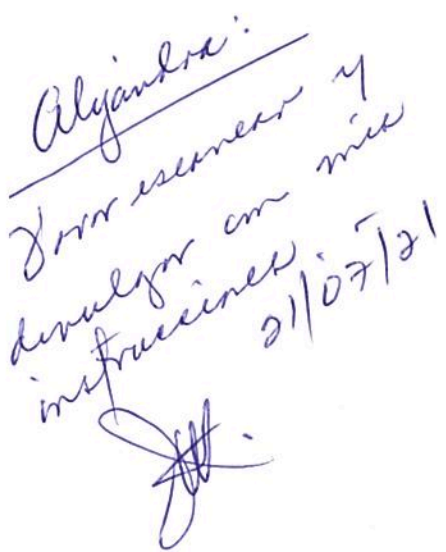 Alejandra:
Favor escanear y
divulgar con mis
instrucciones.-
21/07/21